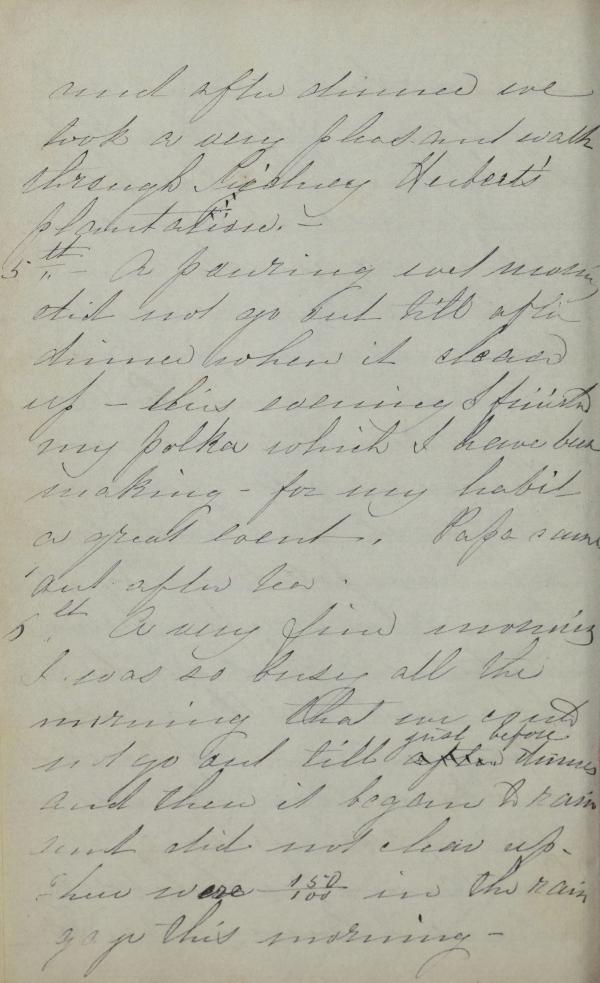 and after dinner we
took a very pleasant walk
through Sidney Herbert's
plantation. -
5th - A pouring wet morning
did not go out till after
dinner when it cleared
up - this evening I finished
my polka which I have been
making - for my habit
a great event. Papa came
out after tea.
6th A very fine morning
I was so busy all the
morning that we could
not go out till after just before dinner
and then it began to rain
and did not clear up -
There were 150/100 in the rain
gage this morning -